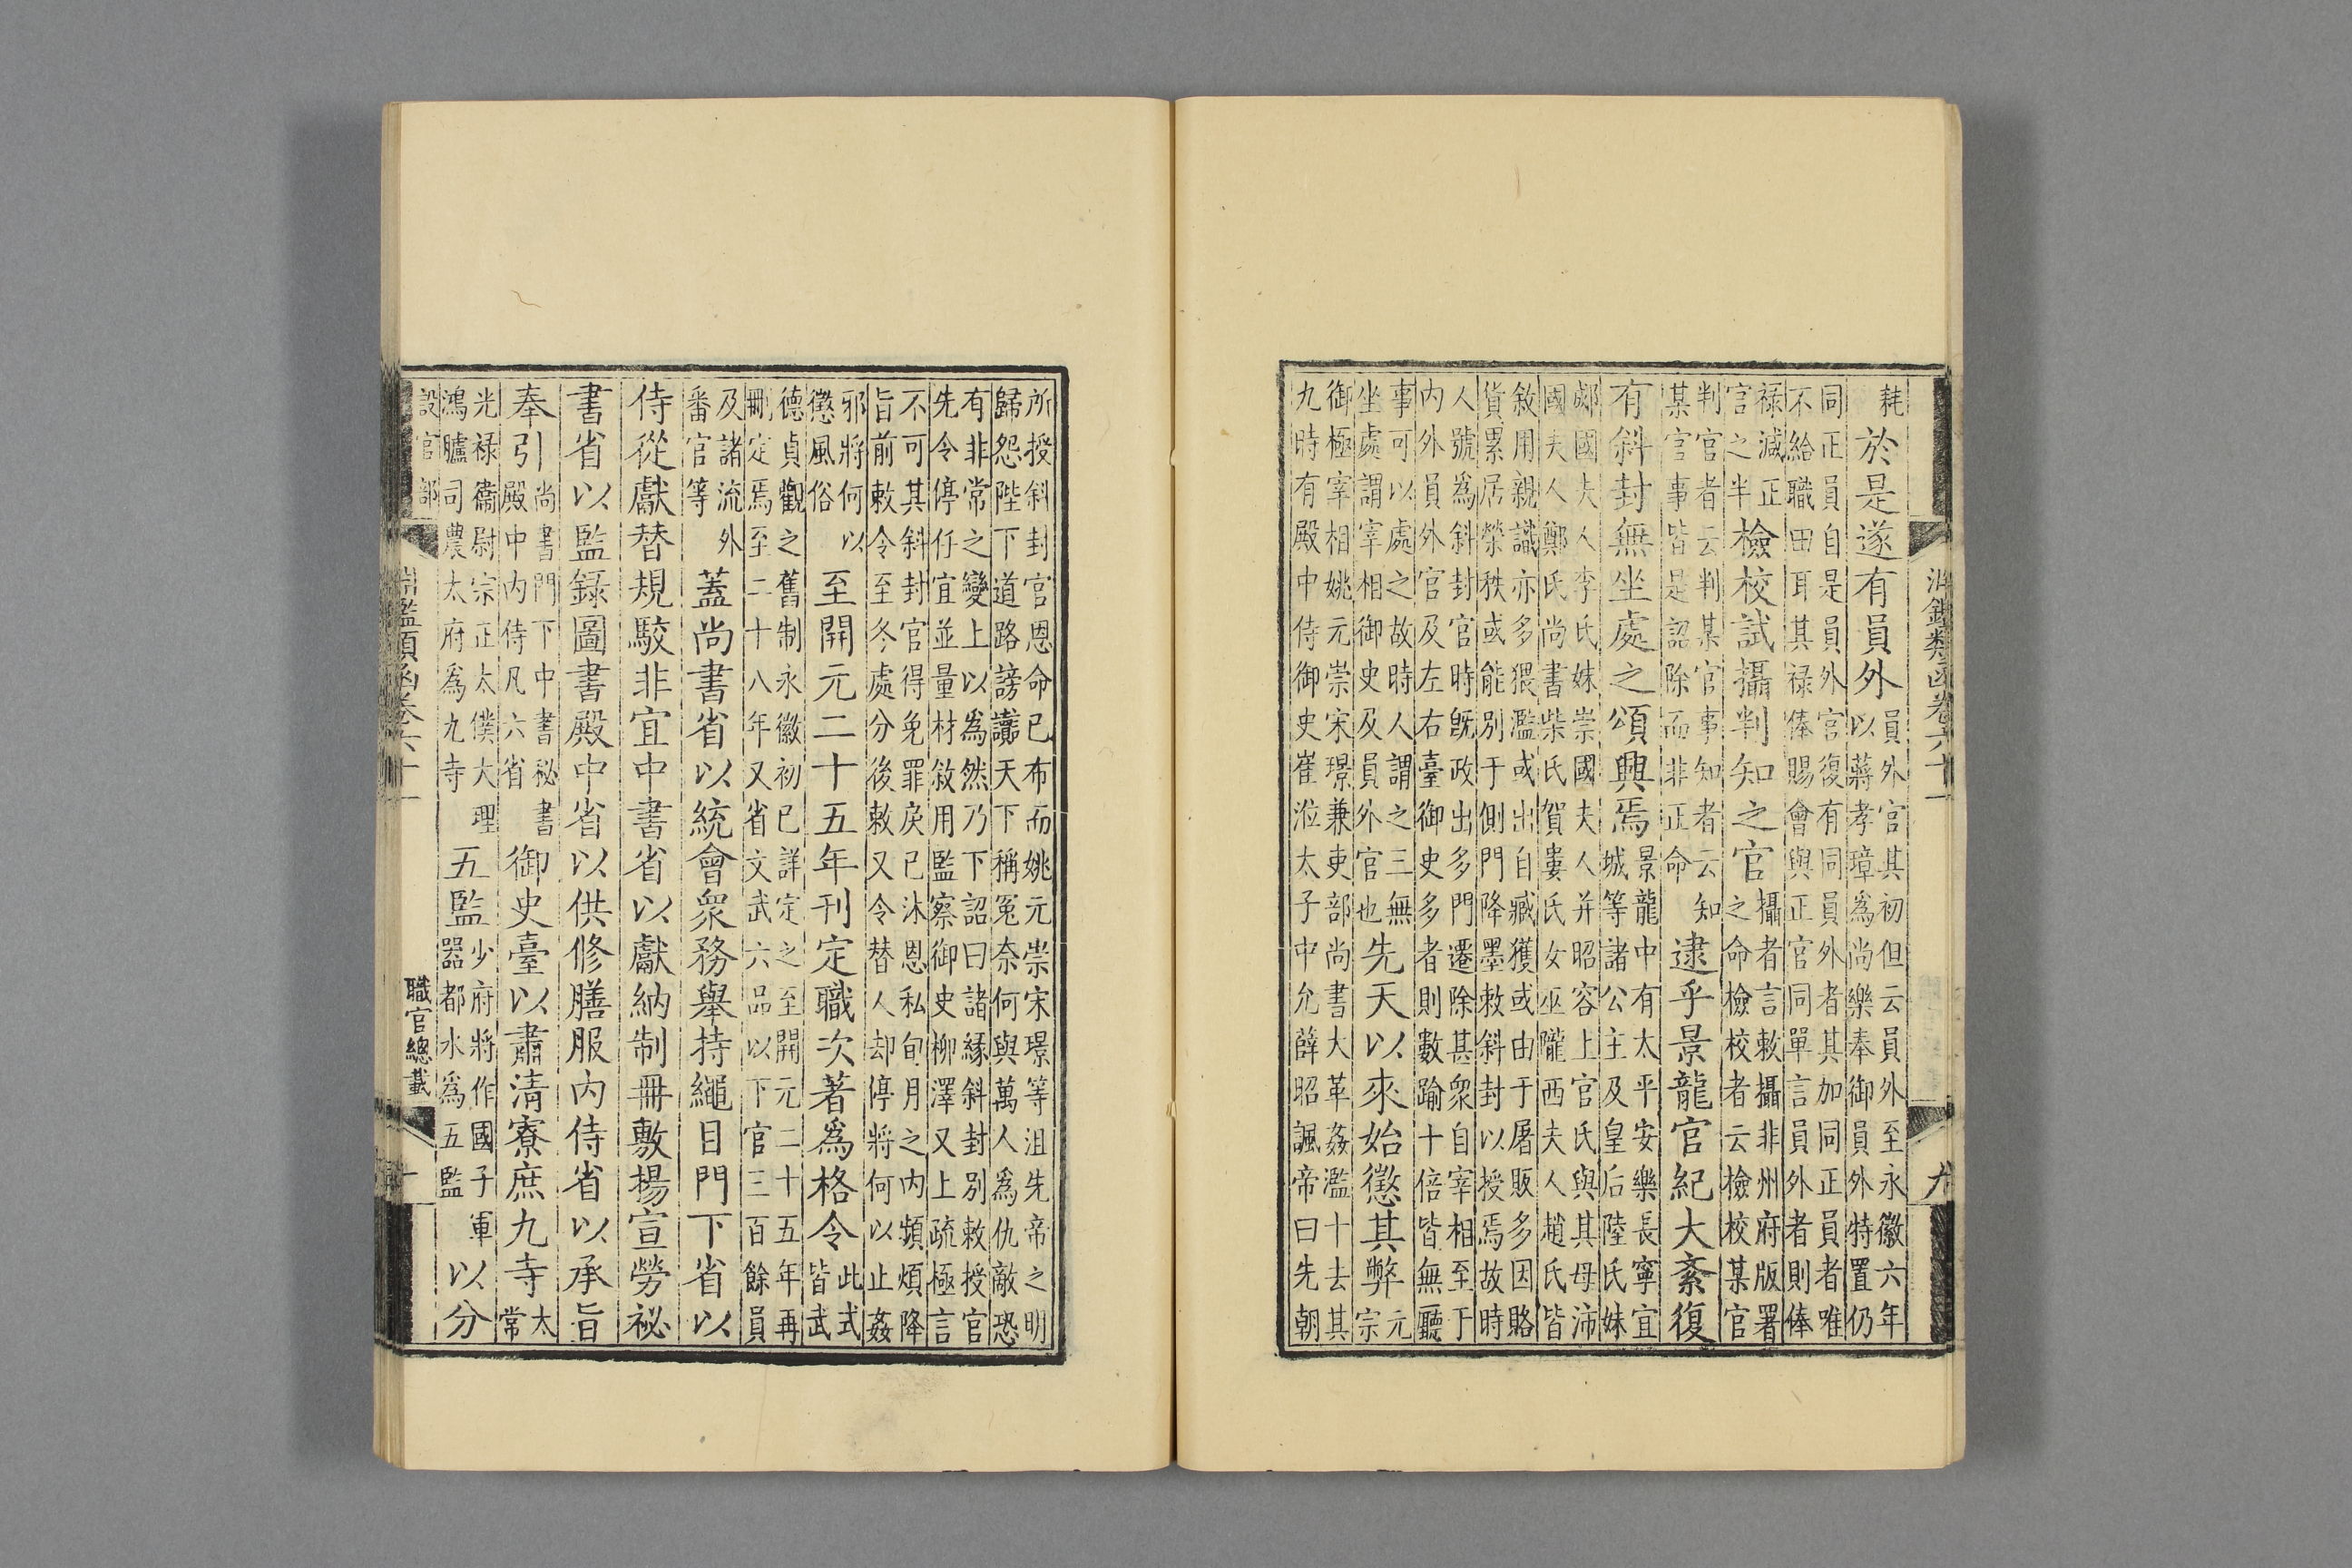 淵鑑類函卷六十一
九
耗於是遂有員外員外官其初但云員外至永徽六年
以蔣孝璋為尚樂奉御員外特置仍
同正員自是員外官復有同員外者其加同正員者唯
不給職田耳其祿俸賜會與正官同單言員外者則俸
祿減正
官之半檢校試攝判知之官攝者言敕攝非州府版署
之命檢校者云檢校某官
判官者云判某官事知者云知
某官事皆是詔除而非正命逮乎景龍官紀大紊復
有斜封無坐處之頌興焉景龍中有太平安樂長寧宜
城等諸公主及皇后陸氏妹
郕國夫人李氏妹崇國夫人并昭容上官氏與其母沛
國夫人鄭氏尚書柴氏賀婁氏女巫隴西夫人趙氏皆
敘用親識亦多猥濫或出自臧獲或由于屠販多因賂
貨累居榮秩或能別于側門降墨敕斜封以授焉故時
人號為斜封官時既政出多門遷除甚眾自宰相至于
內外員外官及左右臺御史多者則數踰十倍皆無廳
事可以處之故時人謂之三無
坐處謂宰相御史及員外官也先天以來始懲其弊元
宗
御極宰相姚元崇宋璟兼吏部尚書大革姦濫十去其
九時有殿中侍御史崔涖太子中允薛昭諷帝曰先朝
所授斜封官恩命已布而姚元崇宋璟等沮先帝之明
歸怨陛下道路謗讟天下稱冤奈何與萬人為仇敵恐
有非常之變上以為然乃下詔曰諸緣斜封別敕授官
先令停任宜並量材敘用監察御史柳澤又上疏極言
不可其斜封官得免罪戾已沐恩私旬月之內頻煩降
旨前敕令至冬處分後敕又令替人却停將何以止姦
邪將何以
懲風俗至開元二十五年刊定職次著為格令此式
皆武
德貞觀之舊制永徽初已詳定之至開元二十五年再
刪定焉至二十八年又省文武六品以下官三百餘員
及諸流外
番官等蓋尚書省以統會眾務舉持繩目門下省以
侍從獻替規駁非宜中書省以獻納制冊敷揚宣勞祕
書省以監錄圖書殿中省以供修膳服內侍省以承旨
奉引尚書門下中書秘書
殿中內侍凡六省御史臺以肅清寮庶九寺太
常
光祿衞尉宗正太僕大理
鴻臚司農太府為九寺五監少府將作國子軍
器都水為五監以分
設官部
淵鑑類函卷六十一
職官總載
十